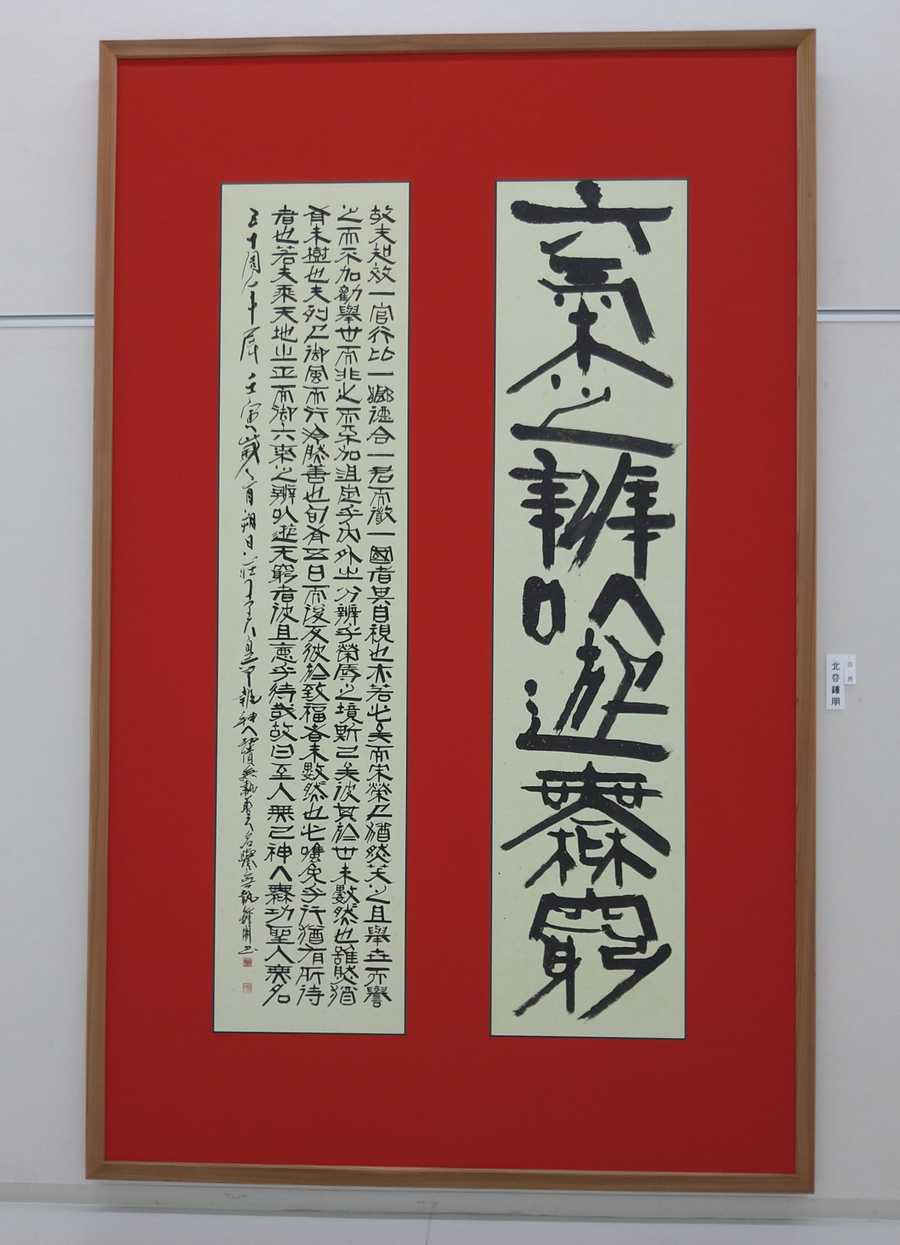 六氣之辨以遊無窮
故夫知效一官行比一鄉德合一君而徵一國者其自視也亦若此矣而宋榮子猶然笑之且舉世而譽
之而不加勸舉世而非之而不加沮定乎內外之分辨乎榮辱之境斯已矣彼其於世未數然也雖然猶
有未樹也夫列子御風而行泠然善也旬有五日而後反彼於致福者未數然也此雖免乎行猶有所待
者也若夫乘天地之正而御六氣之辨以遊无窮者彼且惡乎待哉故曰至人無己神人無功聖人無名
五十周年展壬寅歲月朔日莊子